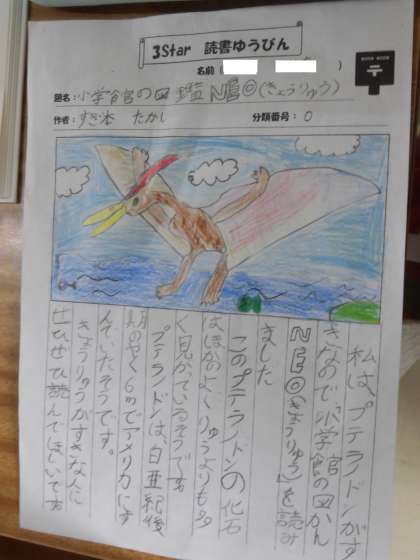 3Star 読書ゆうびん
名前（ ）
題名：小学館の図鑑NEO(きょうりゅう)
作者：すぎ本 たかし
分類番号：0
私は、プテラノドンがす
きなので、「小学館の図かん
NEO(きょうりゅう)」を読み
ました
このプテラノドンの化石
はほかのよくりゅうよりも多
く見つかているそうです
プテラノドンは、白亜紀後
期のやく6mでアメリカにす
んでいたそうです。
きょうりゅうがすきな人に
ぜひぜひ読んでほしいです